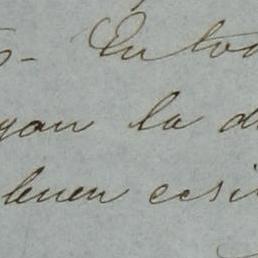 En tod
yan la d
buen ecsi